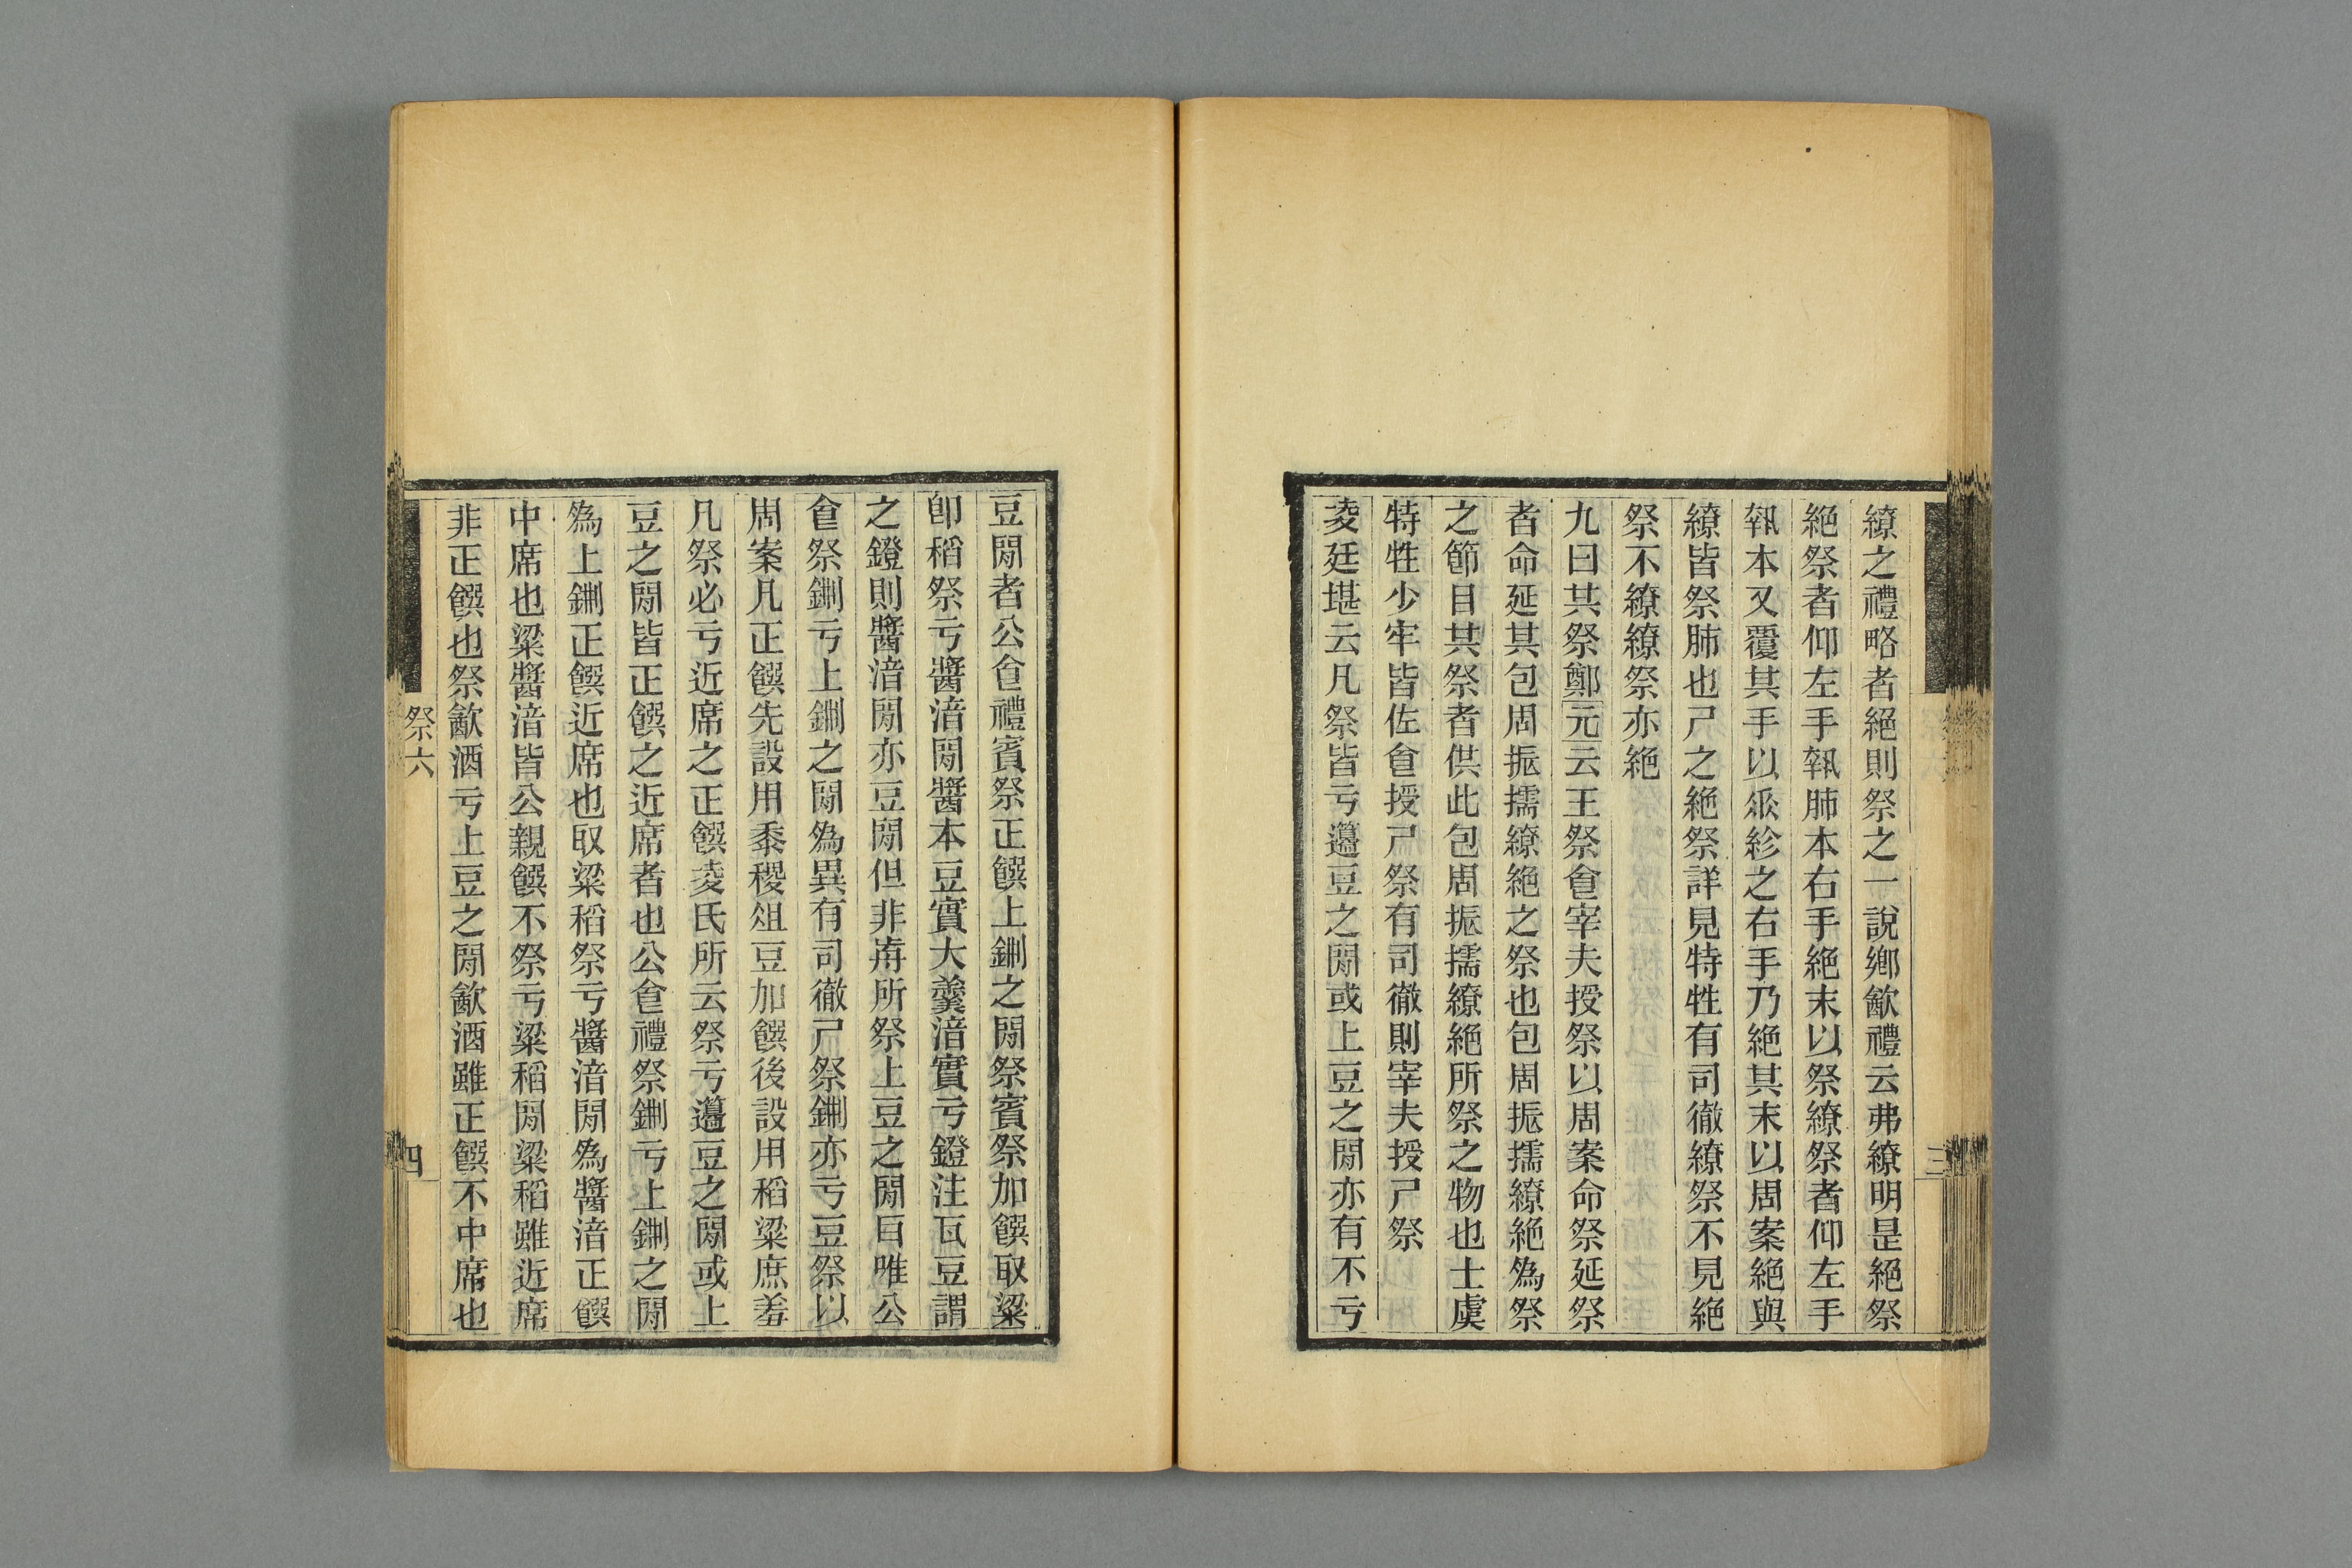 繚之禮略者絕則祭之一說鄉歙禮云弗繚明昰絕祭
絕祭者仰左手執肺本右手絕末以祭繚祭者仰左手
執本又覆其手以𠂢紾之右手乃絕其末以周案絕與
繚皆祭肺也尸之絕祭詳見特牲有司徹繚祭不見絕
祭不繚繚祭亦絕
九曰共祭鄭元云王祭㑹宰夫授祭以周案命祭延祭
者命延其包周振擩繚絕之祭也包周振擩繚絕為祭
之節目共祭者供此包周振擩繚絕所祭之物也士虞
特牲少牢皆佐㑹授尸祭有司徹則宰夫授尸祭
凌廷堪云凡祭皆亏籩豆之閒或上豆之閒亦有不亏
豆閒者公㑹禮賓祭正饌上鉶之閒祭賓祭加饌取粱
卽稻祭亏醬湆閒醬本豆實大羹湆實亏鐙注瓦豆謂
之鐙則醬湆閒亦豆閒但非歬所祭上豆之閒𦣝唯公
㑹祭鉶亏上鉶之閒為異有司徹尸祭鉶亦亏豆祭以
周案凡正饌先設用黍稷俎豆加饌後設用稻粱庶羞
凡祭必亏近席之正饌凌氏所云祭亏籩豆之閒或上
豆之閒皆正饌之近席者也公㑹禮祭鉶亏上鉶之閒
為上鉶正饌近席也取粱稻祭亏醬湆閒為醬湆正饌
中席也粱醬湆皆公親饌不祭亏粱稻閒粱稻雖近席
非正饌也祭歙酒亏上豆之閒歙酒雖正饌不中席也
祭六
四
三